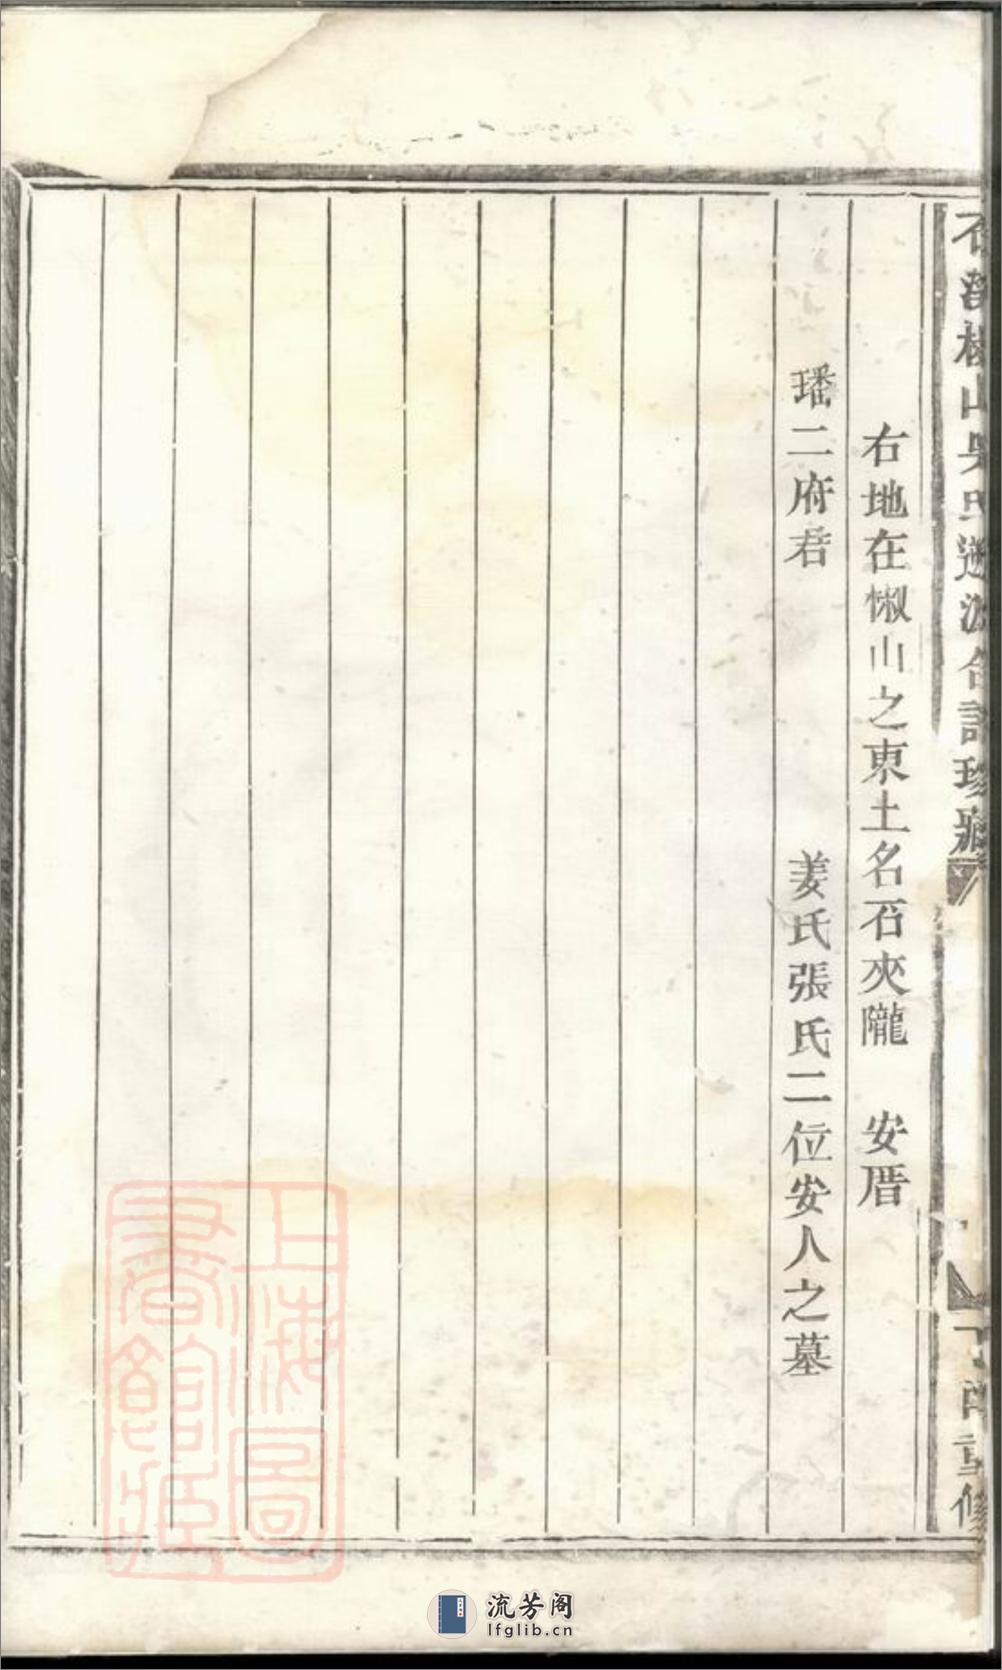 右地在㮈山之東土名石夾隴　安厝
璠二府君　姜氏張氏二位安人之墓
山吳氏
重修
上海圖書館藏
流芳阁
lfglib.cn